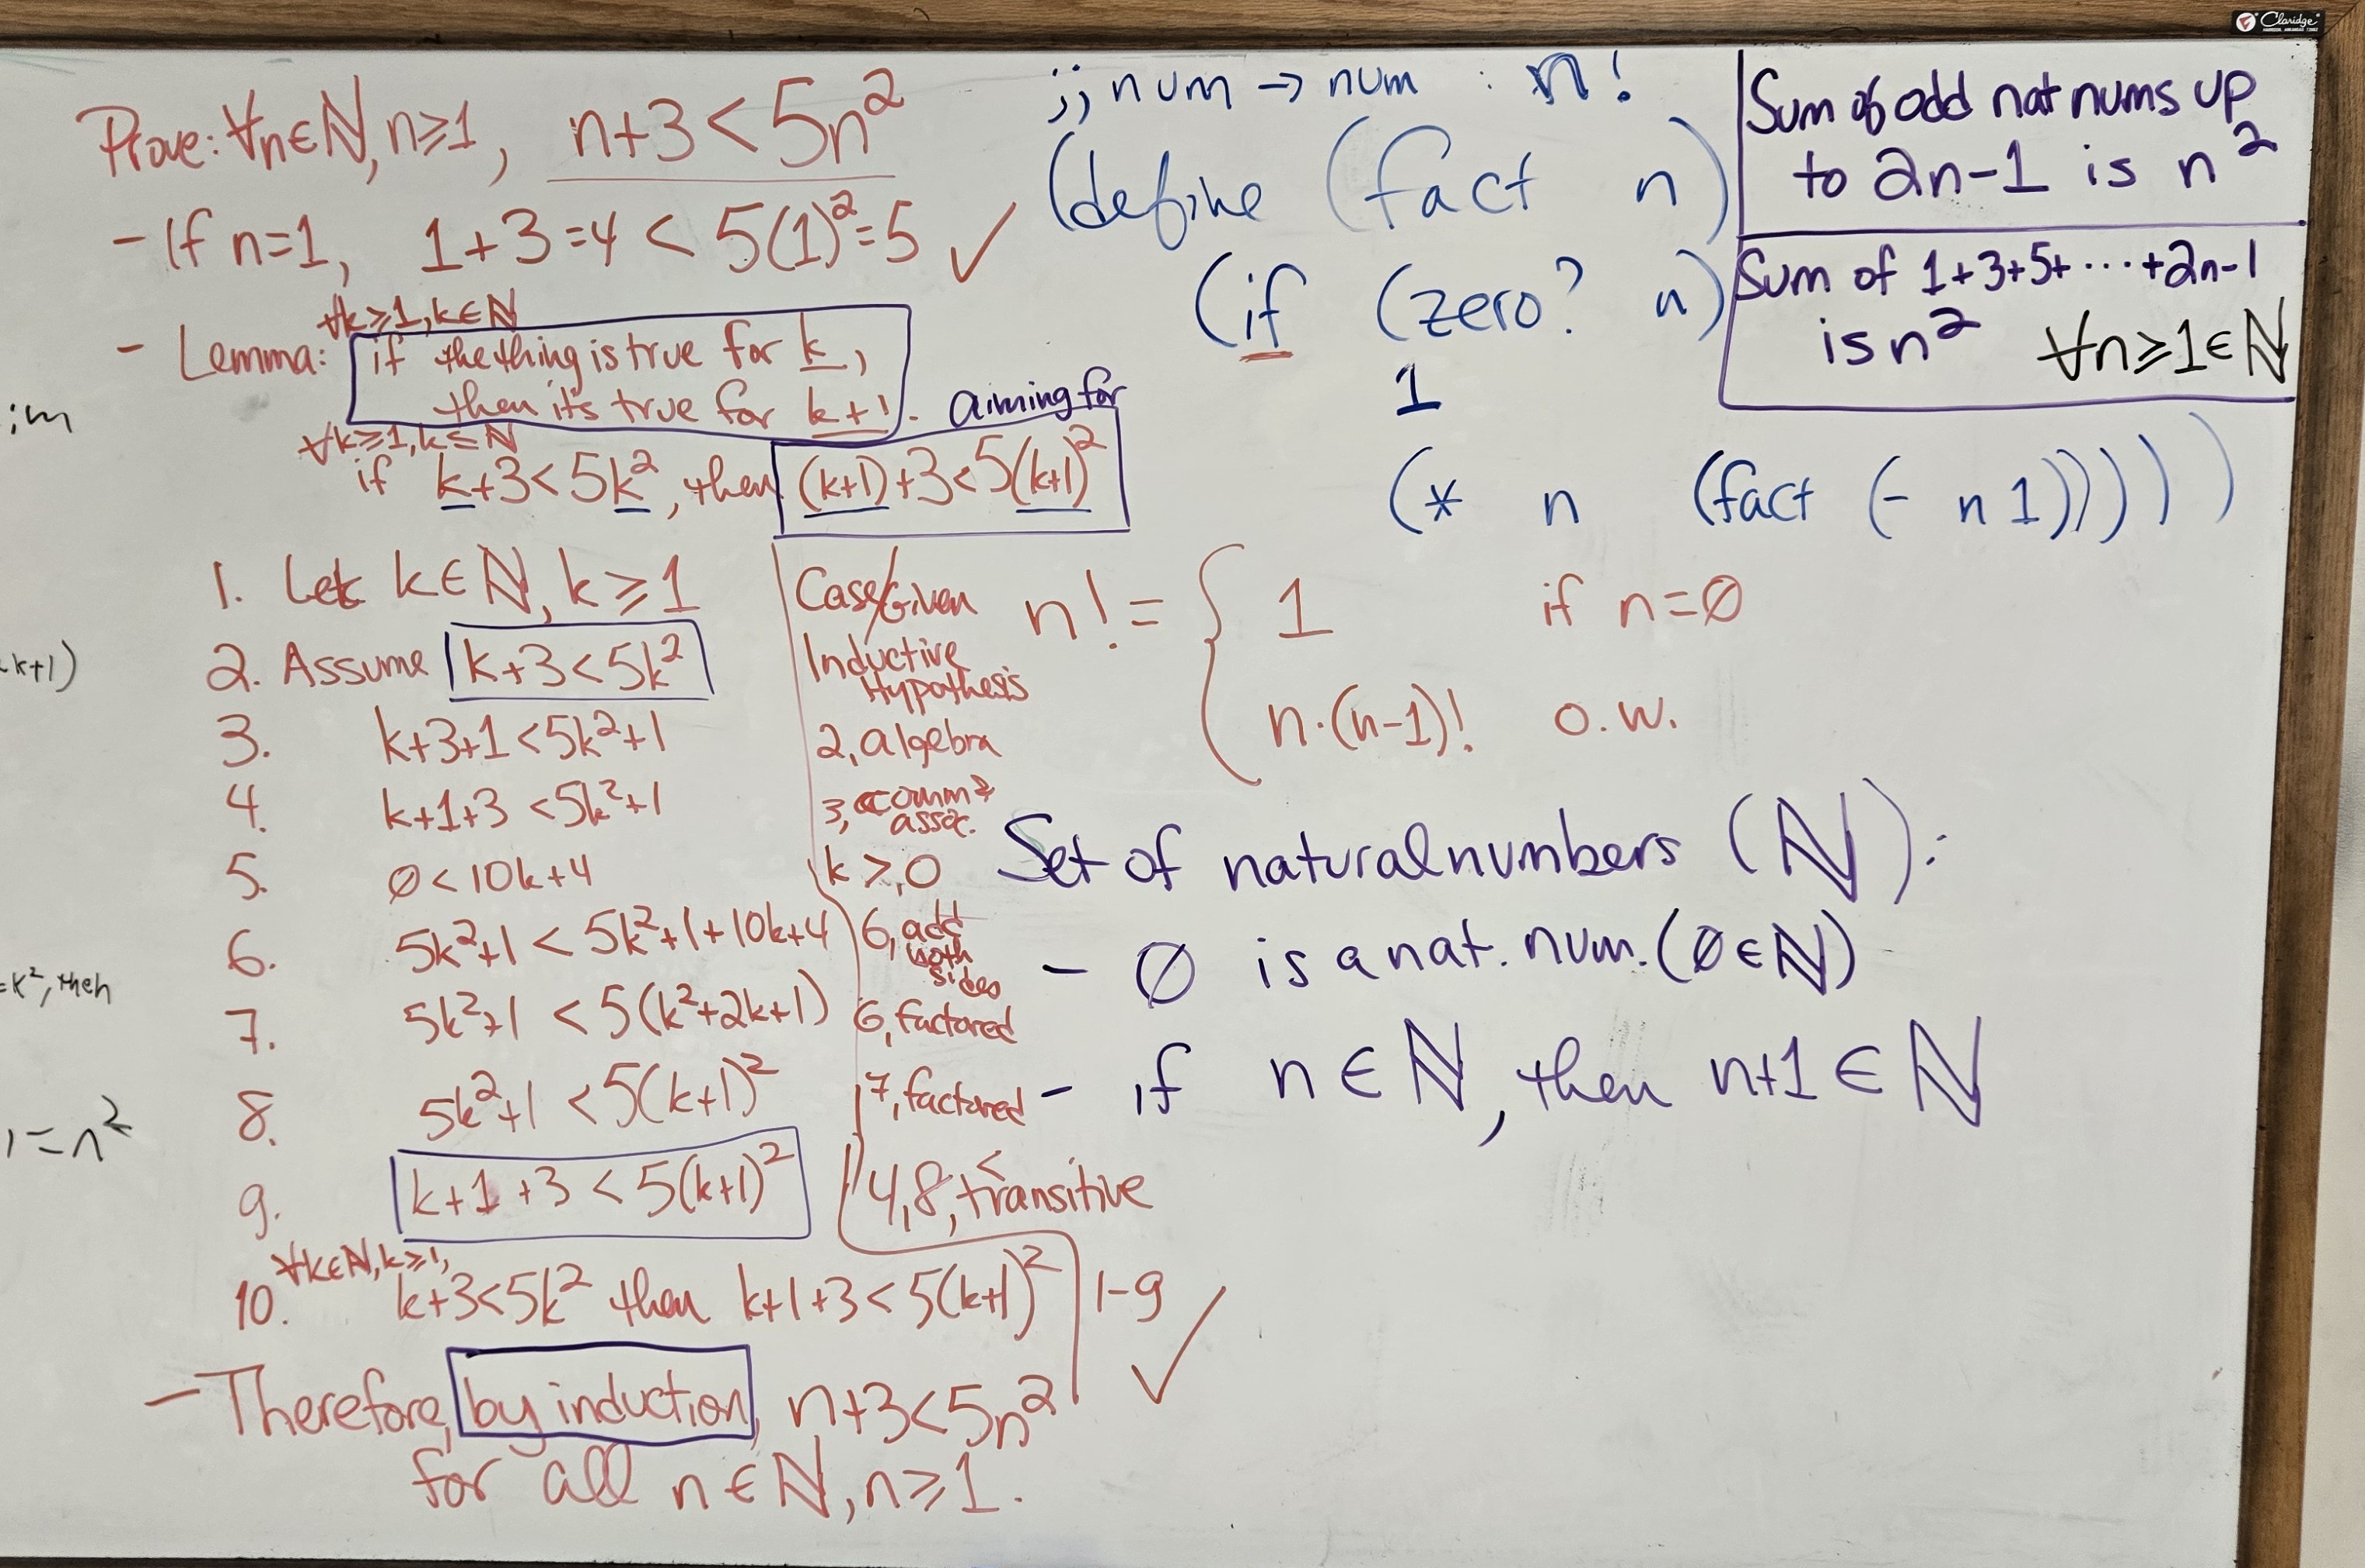 Claridge
Prove: ∀n∈ℕ, n≥1, n+3<5n²
- If n=1, 1+3=4 < 5(1)²=5 ✓
∀k≥1, k∈ℕ
- Lemma: if the thing is true for k,
then it's true for k+1.
aiming for
∀k≥1, k∈ℕ
if k+3<5k², then (k+1)+3<5(k+1)²
1. Let k∈ℕ, k≥1 Case/Given
2. Assume k+3<5k² Inductive
Hypothesis
3. k+3+1<5k²+1 2, algebra
4. k+1+3<5k²+1 3, comm &
assoc.
5. 0<10k+4 k≥0
6. 5k²+1 < 5k²+1+10k+4 6, add
both
sides
7. 5k²+1 < 5(k²+2k+1) 6, factored
8. 5k²+1 < 5(k+1)² 7, factored
9. k+1+3 < 5(k+1)² 4,8, < transitive
∀k∈ℕ, k≥1,
10. k+3<5k² then k+1+3<5(k+1)² 1-9 ✓
- Therefore, by induction, n+3<5n²
for all n∈ℕ, n≥1.
;; num → num : n!
(define (fact n)
(if (zero? n)
1
(* n (fact (- n 1)))))
n! = { 1 if n=0
n·(n-1)! o.w.
Set of natural numbers (ℕ):
- 0 is a nat. num. (0∈ℕ)
- if n∈ℕ, then n+1∈ℕ
Sum of odd nat nums up
to 2n-1 is n²
Sum of 1+3+5+···+2n-1
is n² ∀n≥1∈ℕ
k+1)
=k², then
=n²